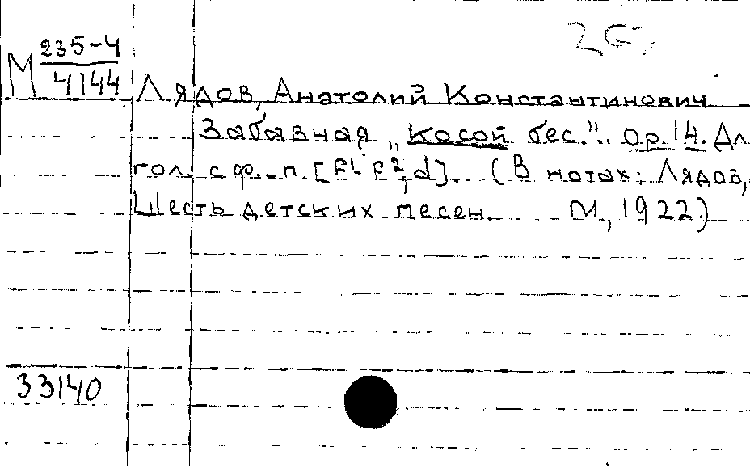 2G
М 235-4
4144
Лядов, Анатолий Константинович
Забавная „Косой бес.". Op.14. Дл
гол. с ф.-п. [F1-F2, d]. (В нотах: Лядов,
Шесть детских песен. М., 1922)
33140